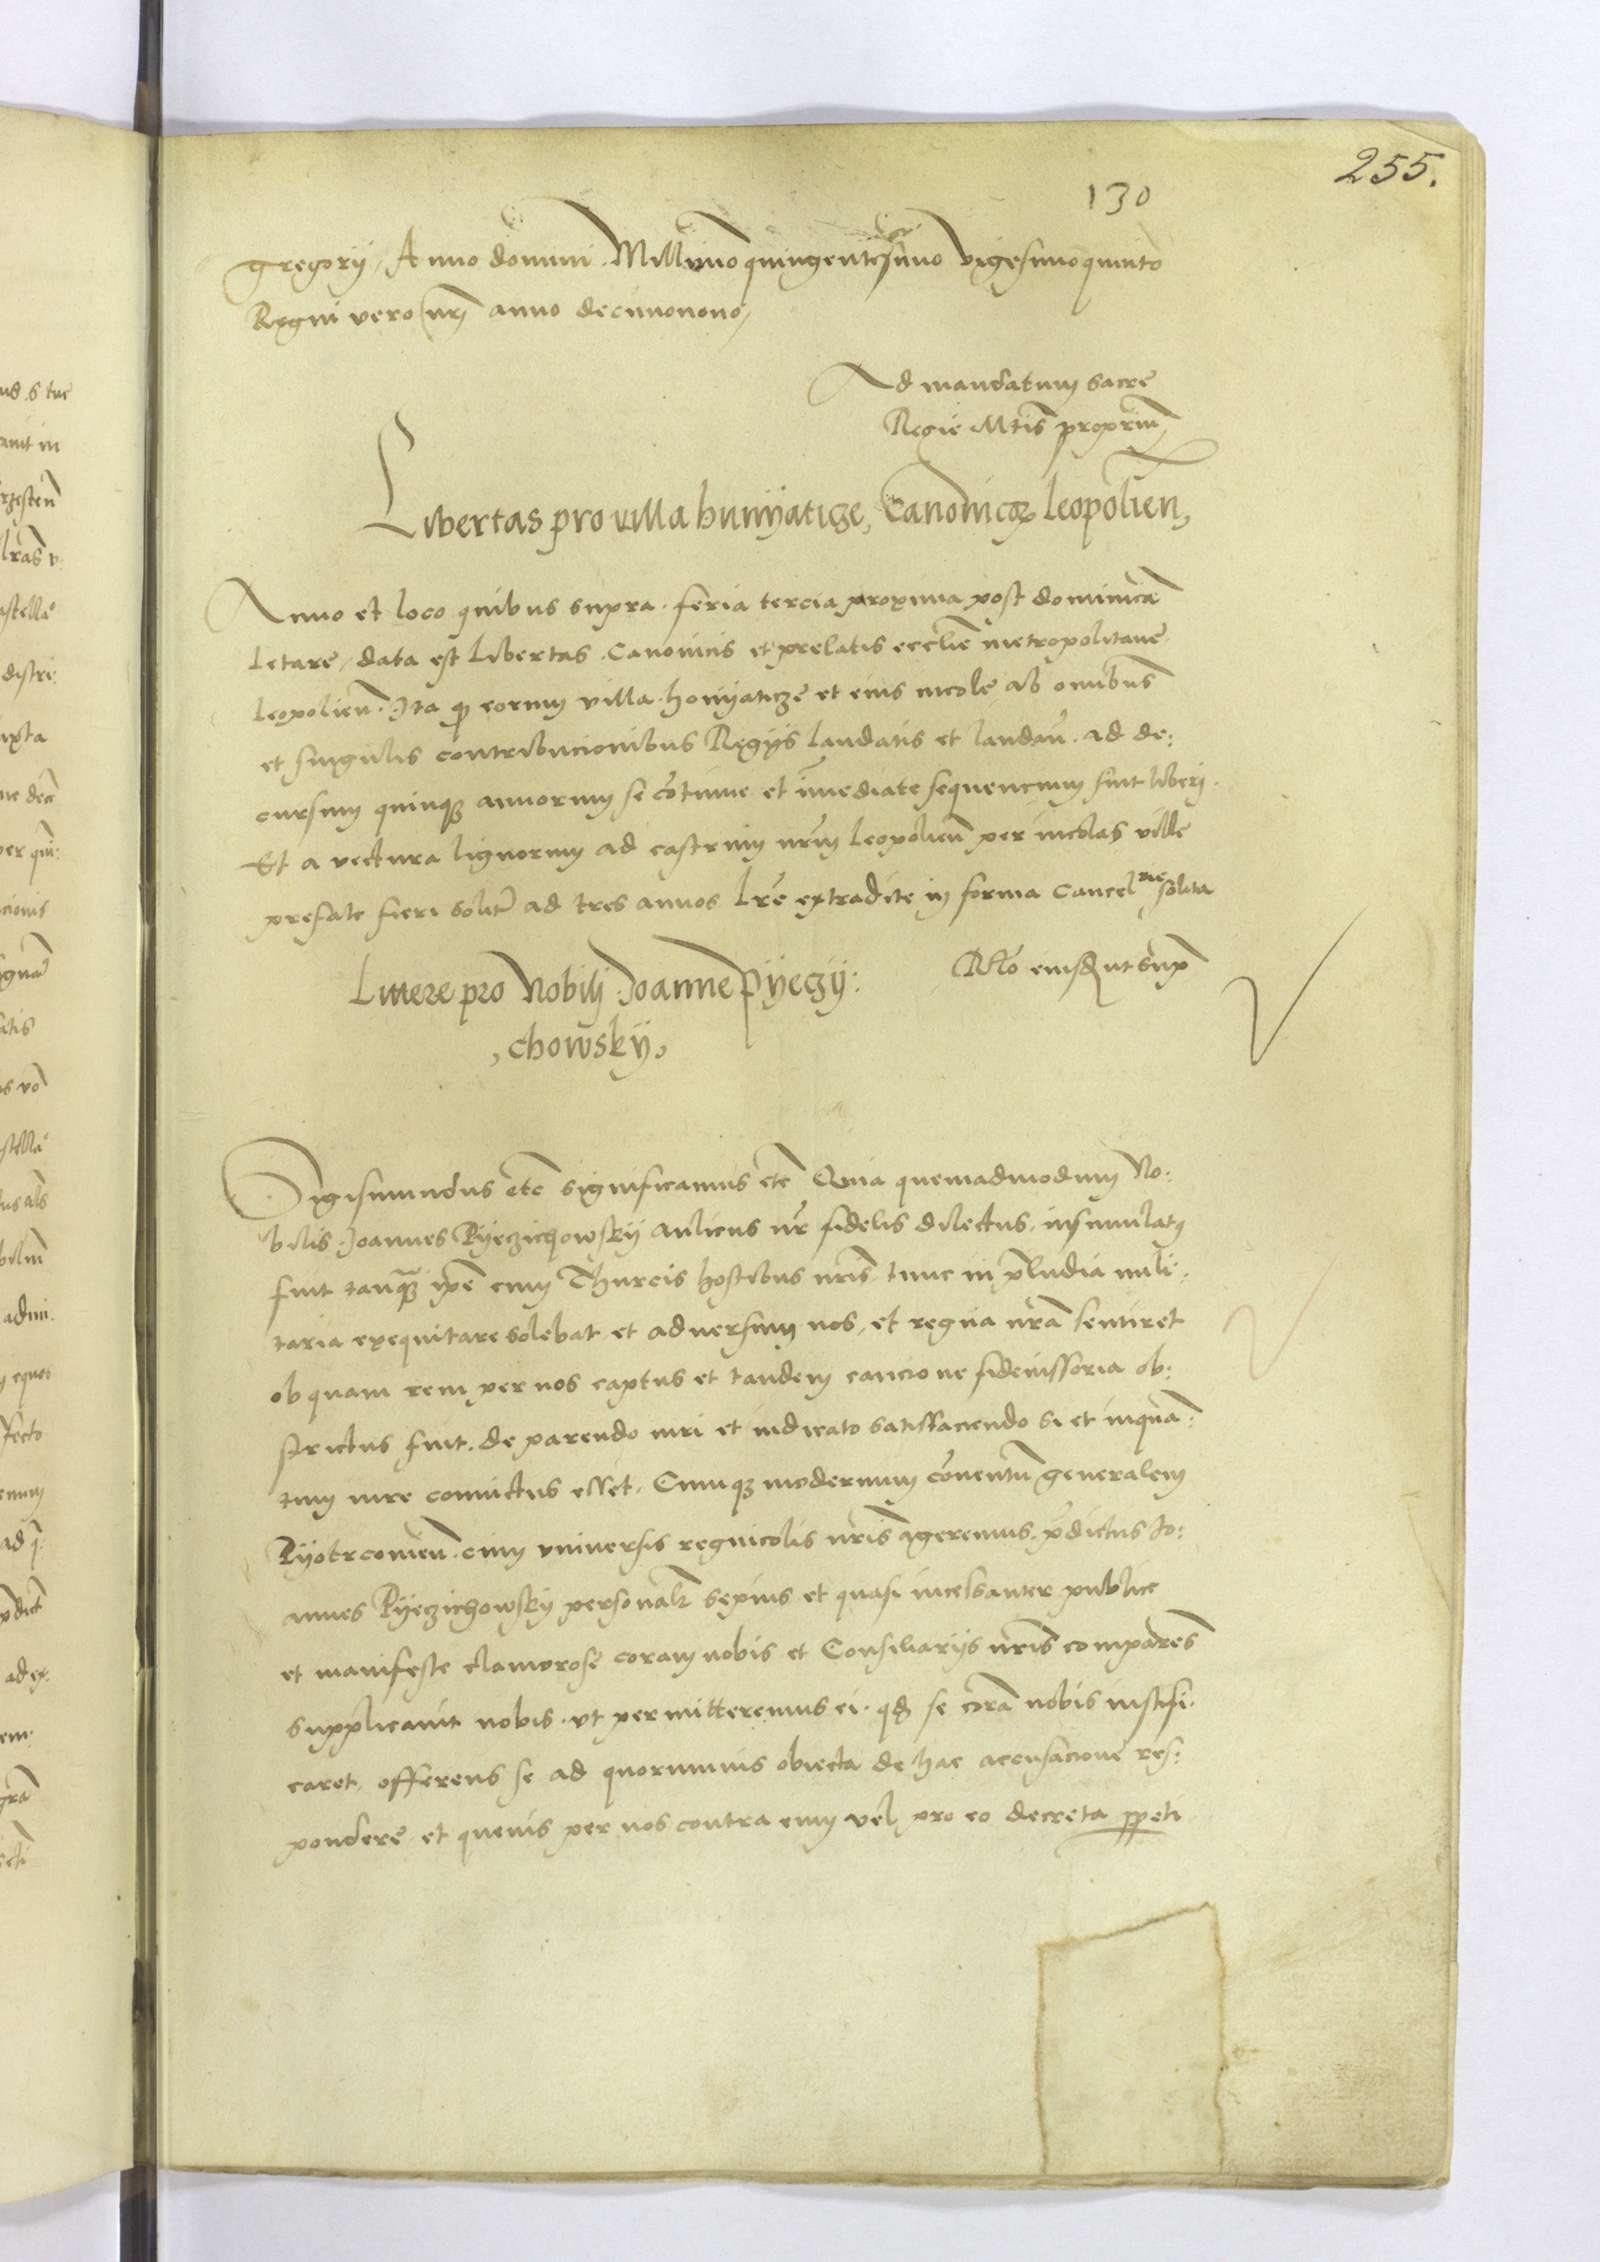 255.
130
gregorij, Anno domini Mill'imo quingentesimo vigesimo quinto
Regni vero nr̃i anno decimonono,
Ad mandatum sacre
Regie Mtis proprium
Libertas pro villa hunyatige, Canonicor Leopolien,
Anno et loco quibus supra. feria tercia proxima post dominicã
letare, data est Libertas Canonicis et prelatis ecclie metropolitane
Leopolieñ. Ita qp eorum villa honyaticze et eius incole ab omnibus
et singulis contribucionibus Regijs laudatis et laudañ. ad de:
cursum quinqz annorum se cõtinue et imediate sequencium sint liberi.
Et a vectura lignorum ad castrum nr̃m Leopolieñ per incolas ville
prefate fieri solit̃ ad tres annos lr̃e extradite in forma Cancel rie solita
Rlo eiusd ut sup
Littere pro Nobilj Joanne Pyegy:
chowsky,
Sigismundus etc̃ significamus etc̃ Quia quemadmodum No:
bilis Joannes Pyeczichowskij aulicus nr̃ fidelis dilectus, insimulatg
fuit tanq̃ ip̃e cum Thurcis hostibus nr̃is tunc in p̃ludia mili:
taria exequitare solebat et adversum nos, et regna nr̃a sentiret
ob quam rem per nos captus et tandem caucione fideiussoria ob:
strictus fuit. de parendo iuri et iudicato satisfaciendo si et inquã:
tum iure convictus esset, Cumqz modernum cõventũ generalem
Pyotrcovieñ. cum universis regnicolis nr̃is ageremus. p̃dictus Jo:
annes Pyeczichowsky personalr̃ sepius et quasi incessanter publice
et manifeste clamorose coram nobis et Consiliarijs nr̃is comparẽs
supplicavit nobis. ut permitteremus ei. qd se corã nobis iustifi.
caret, offerens se ad quorumvis obiecta de hac accusacione res:
pondere et quevis per nos contra eum vel pro eo decreta ppeti